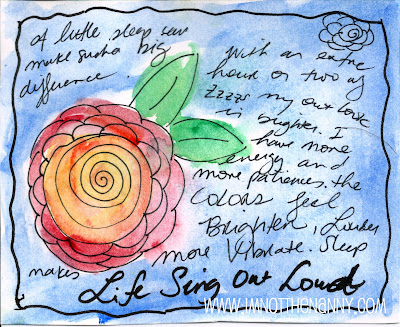 A little sleep can
make such a big
difference.
With an extra
hour or two of
Zzzzs my out look
is brighter. I
have more
energy and
more patience. the
Colors feel
Brighter, Louder
more Vibrate. Sleep
makes
Life Sing Out Loud
WWW.IMNOTTHENANNY.COM